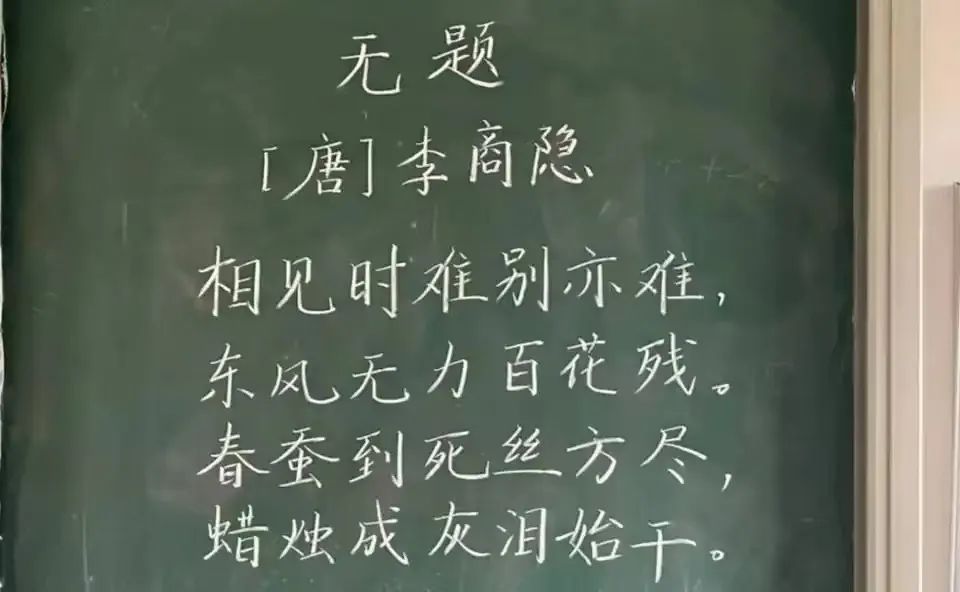 无题
[唐]李商隐
相见时难别亦难，
东风无力百花残。
春蚕到死丝方尽，
蜡烛成灰泪始干。